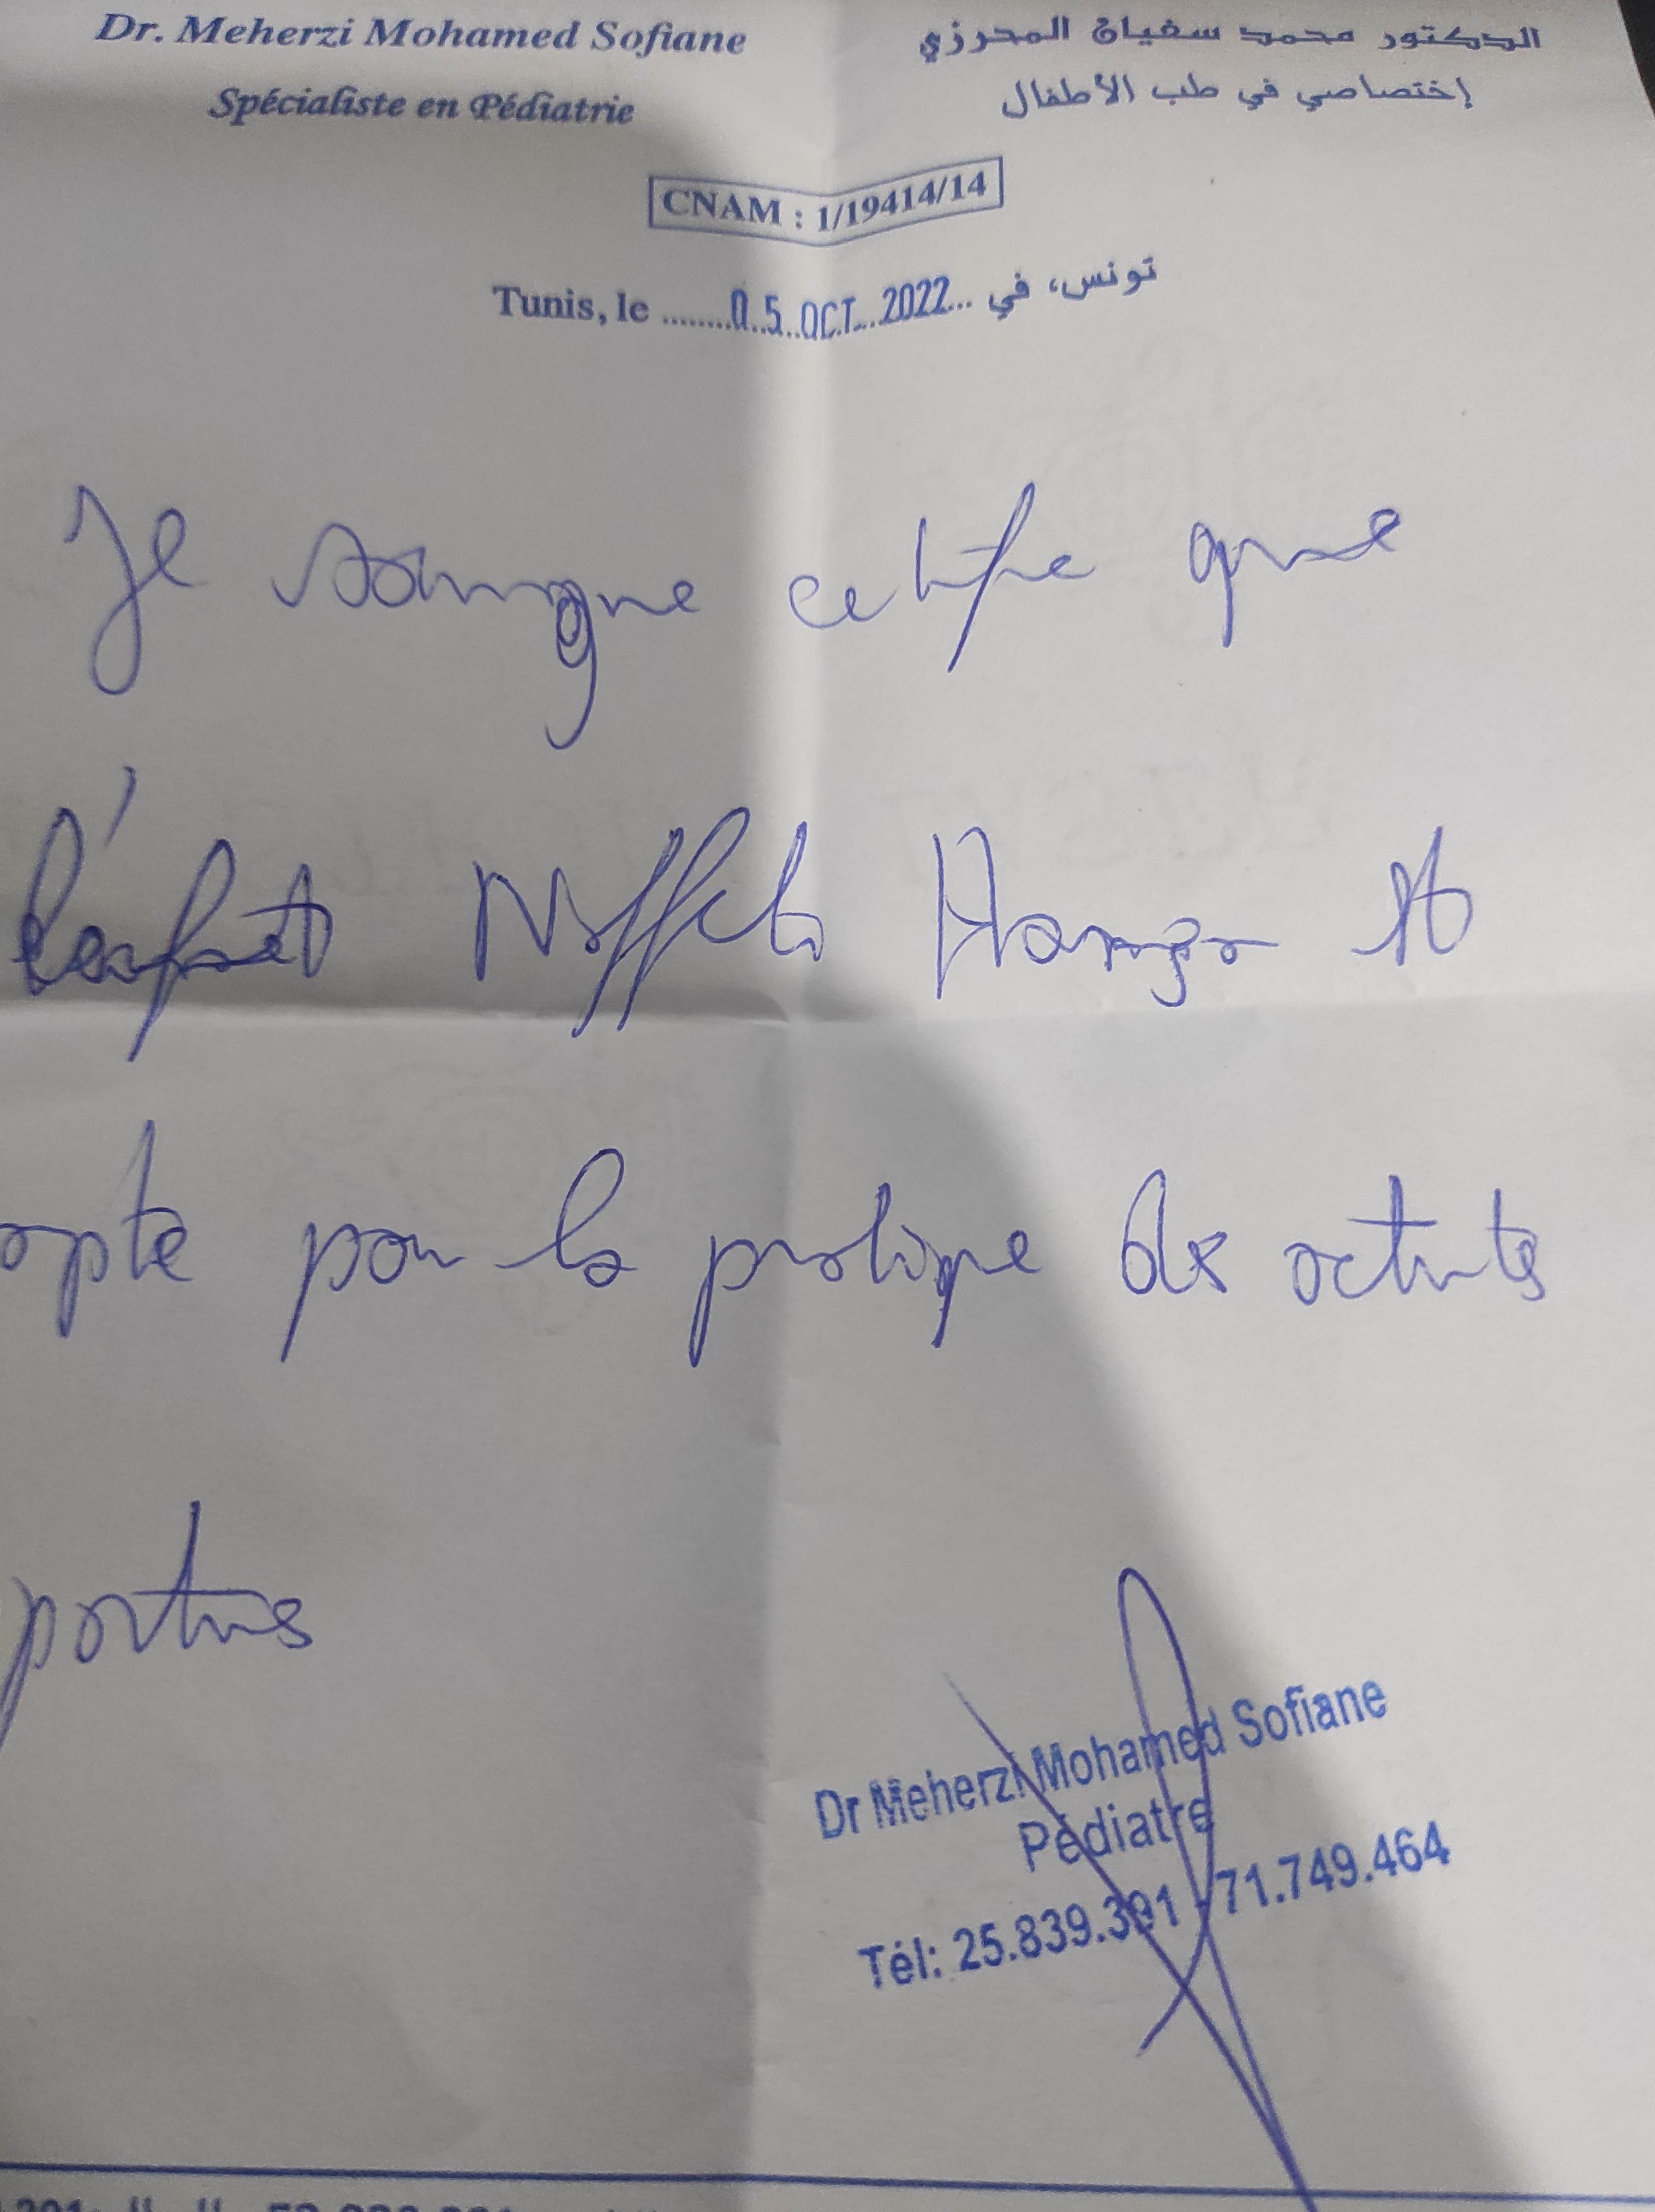 Dr. Meherzi Mohamed Sofiane
Spécialiste en Pédiatrie
الدكتور محمد سفيان المحرزي
إختصاصي في طب الأطفال
CNAM : 1/19414/14
Tunis, le ........0.5..OCT...2022... تونس، في
Je soussigne certifie que
l'enfant Hamza est
apte pour la pratique des activites
sportives
Dr Meherzi Mohamed Sofiane
Pédiatre
Tél: 25.839.391 - 71.749.464